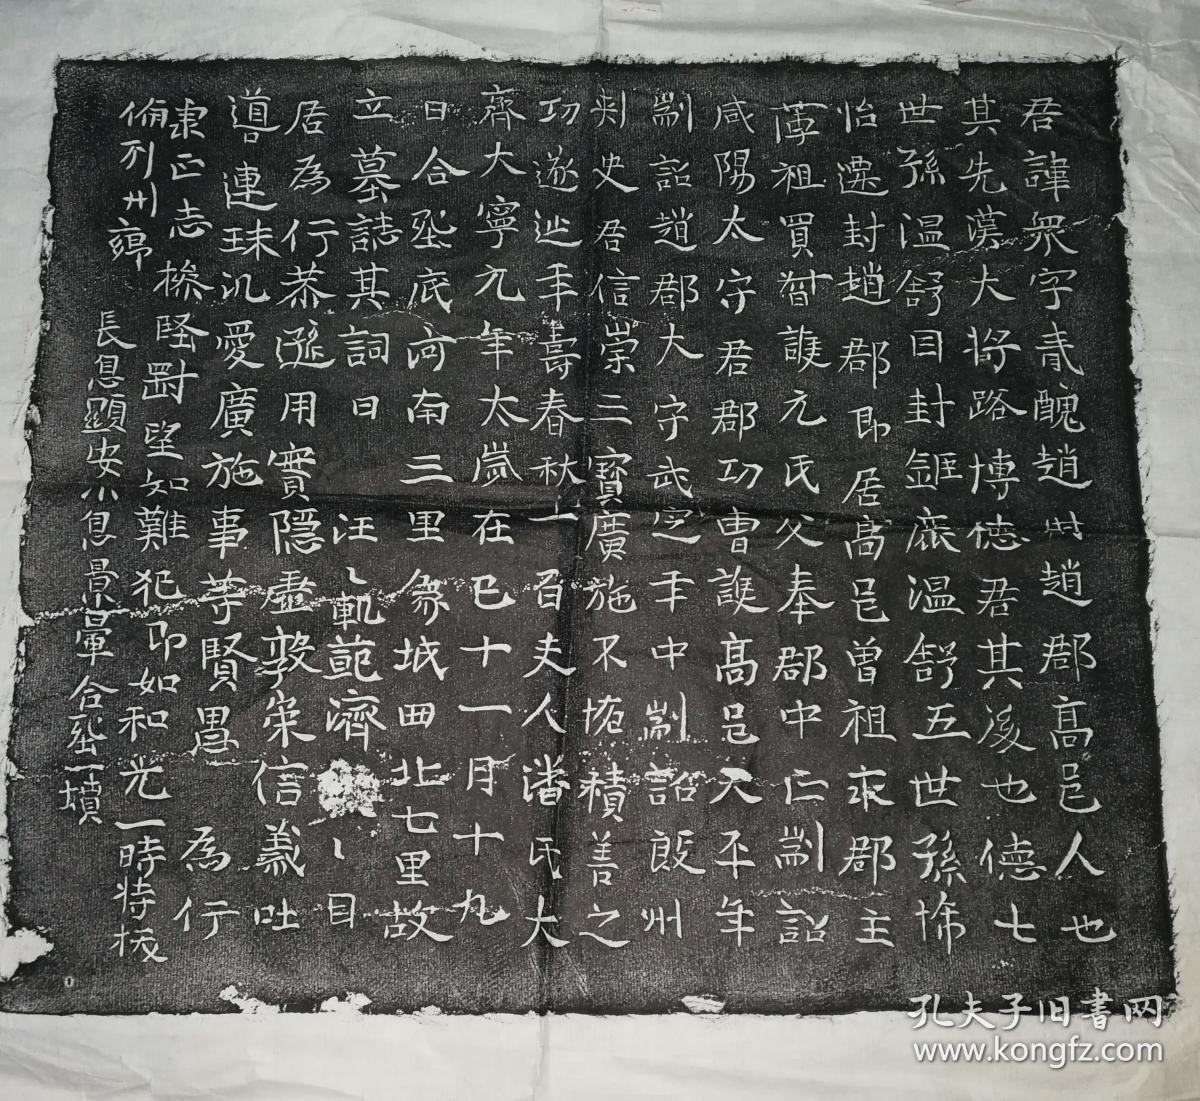 君諱眾字青醜趙州趙郡高邑人也
其先漢大將路博德君其後也德七
世孫温舒目封鉅鹿温舒五世孫怖
怡 封趙郡即居高邑曾祖 郡主
薄祖買督護元氏父奉郡中正 詔
咸陽太守君郡功曹護高邑天平年
詔趙郡太守武定年中 詔殷州
刺史君信崇三寶廣施不 積善之
功遂 年壽春秋一百夫人潘氏大
齊大寧元年太歲在巳十一月十九
日合 河南三里 城西北七里故
立墓誌其詞曰 汪〻軌範濟 〻目
居為行恭遜用實隱虛敦 信義吐
道連珠汎愛廣施事等賢愚 為行
隶正志 對望如難犯即如和光一時特
列州
長息顯安小息景暈合 一墳
孔夫子旧书网
www.kongfz.com